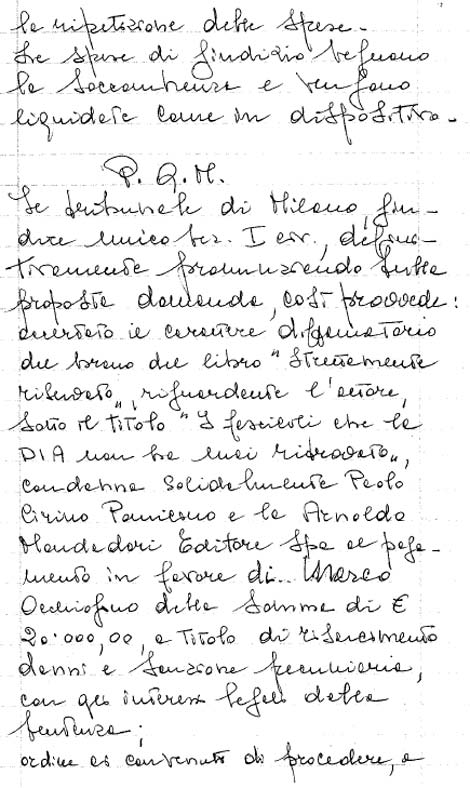 la ripetizione delle spese.
Le spese di giudizio seguono
la soccombenza e vengono
liquidate come in dispositivo.
P. Q. M.
Il tribunale di Milano, giu-
dice unico sez. I civ., defini-
tivamente pronunziando sulla
proposta domanda, così provvede:
accertato il carattere diffamatorio
del brano del libro "Strettamente
riservato", riguardante l'attore,
sotto il titolo "I fascicoli che la
DIA non ha mai ritrovato",
condanna solidalmente Paolo
Cirino Pomicino e la Arnoldo
Mondadori Editore Spa al paga-
mento in favore di Marco
Occhiofino della somma di €
20.000,00, a titolo di risarcimento
danni e sanzione pecuniaria,
con gli interessi legali dalla
sentenza;
ordina ai convenuti di procedere, a